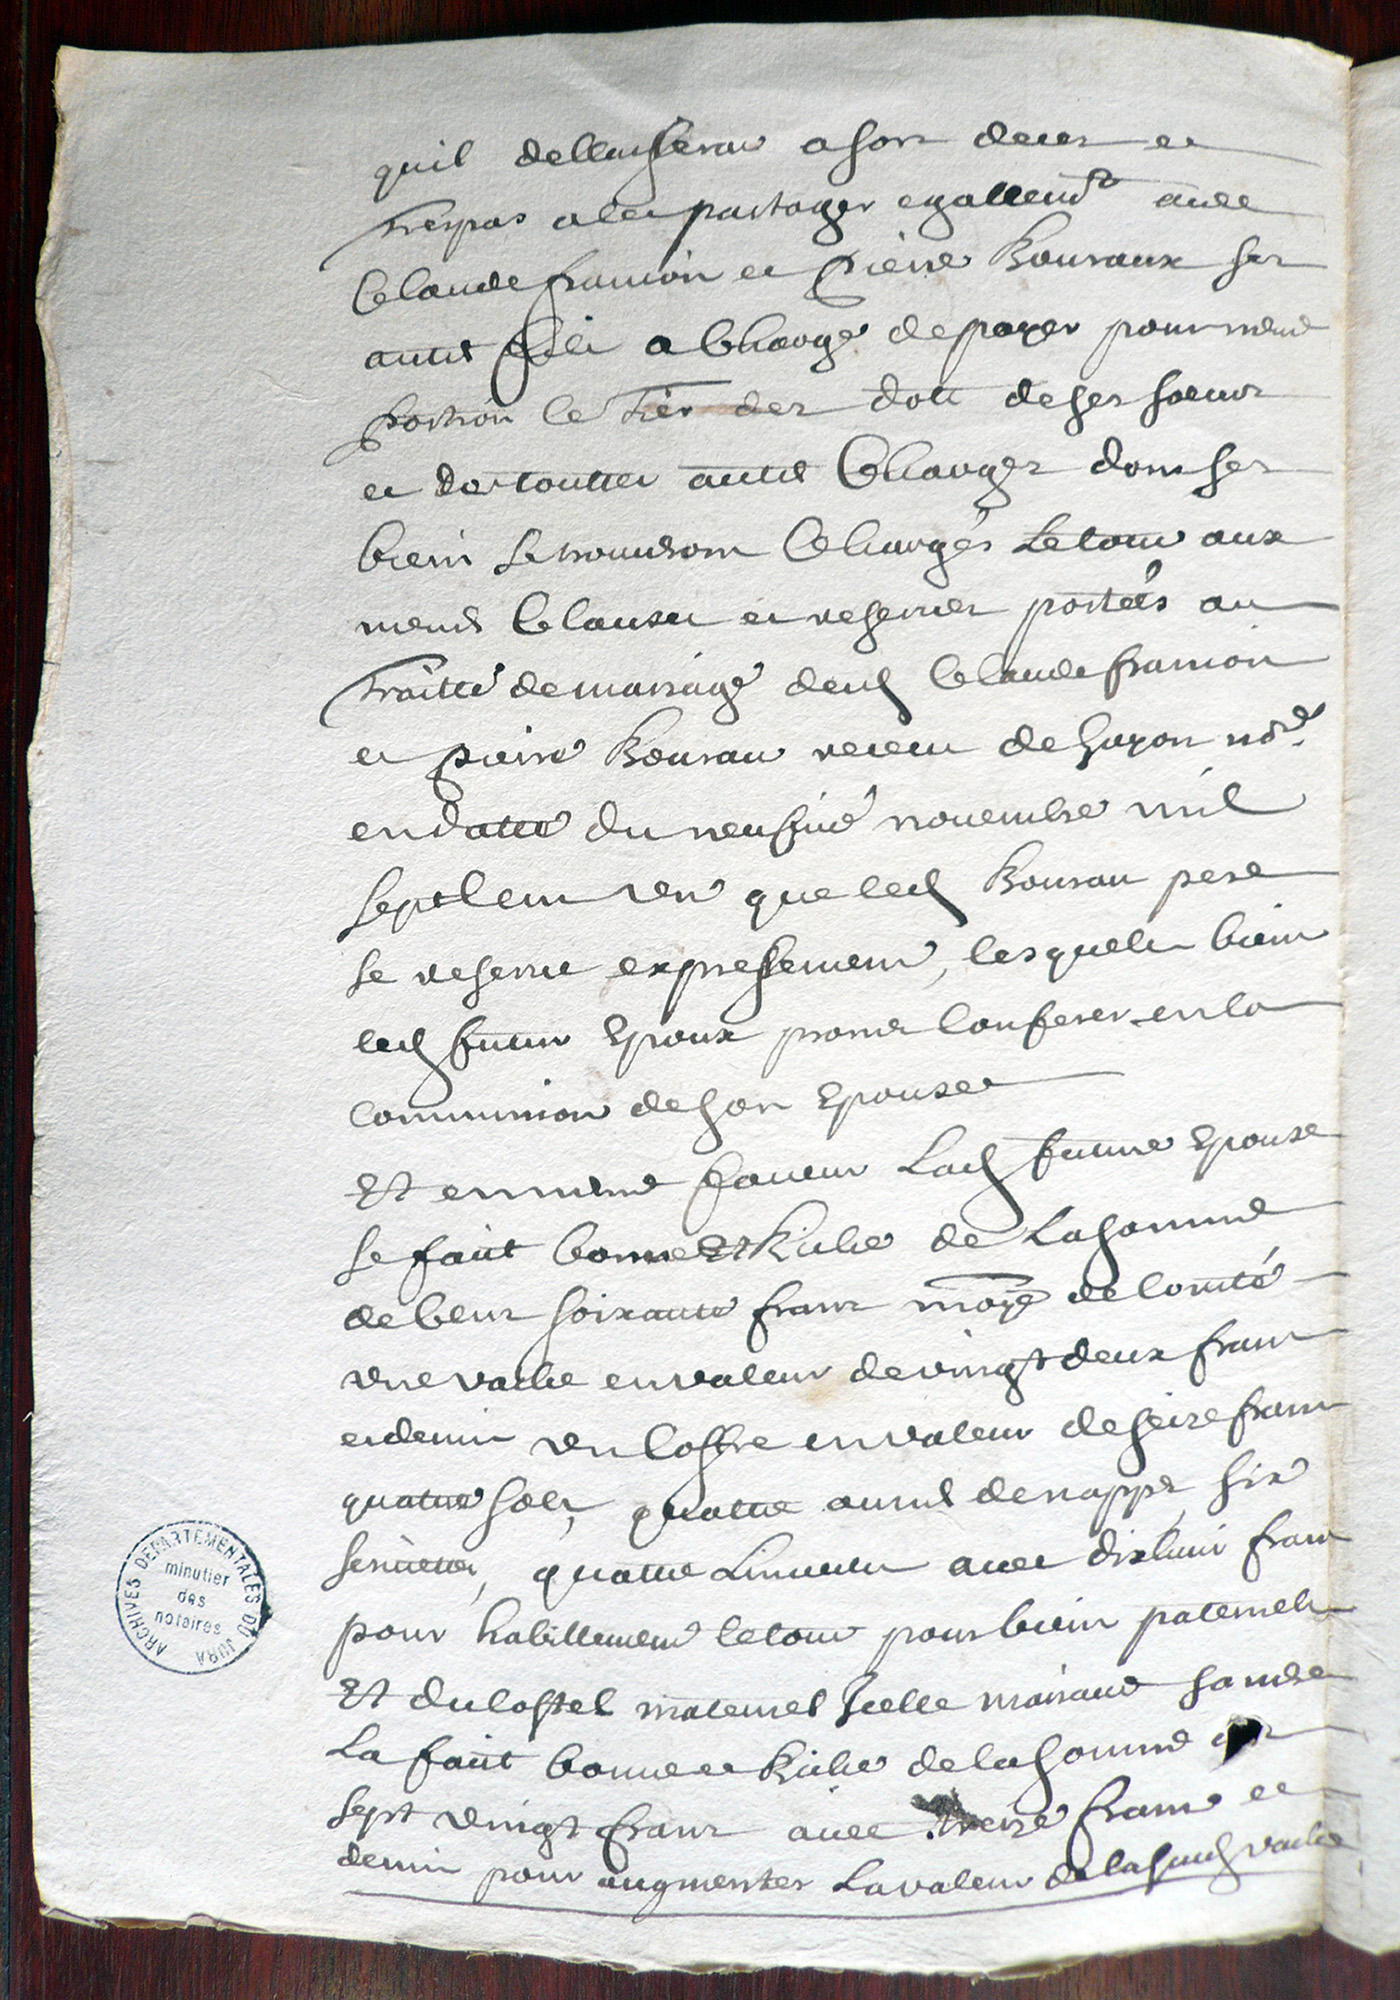 quil dellaissera a son deces et
trespas a les partager egallemt avec
Claude francois et pierre Bouraux ses
autres fils a Charge de payer pour mesme
portion le tier des dots de ses soeurs
et de touttes autres Charges dont ses
biens se trouveront Chargés Le tout aux
mesmes Clauses et reserves portées au
traitté de mariage desd Claude francois
et pierre Bourau receu de Guyon nore
en datte du neufvie novembre mil
sept cent un que led Bourau pere
se reserve expressement, lesquels biens
led futur Epoux promet Conferer en la
communion de son Epouse
Et en mesme faveur Lad future Epouse
se fait bonne Et Riche de La somme
de Cent soixante frans monoye de Comté
une vache en valeur de vingt deux frans
et demis un Coffre en valeur de seize frans
quattre sols, quattre aunes de nappes six
serviettes, quattre Linceuls avec dix huit frans
pour habillement le tout pour biens paternels
Et du Costel maternel Icelle mariante sa mere
La fait bonne et Riche de la somme de
sept vingt frans avec treize frans et
demis pour augmenter La valeur de la susd vache
ARCHIVES DEPARTEMENTALES DU JURA
minutier
des
notaires